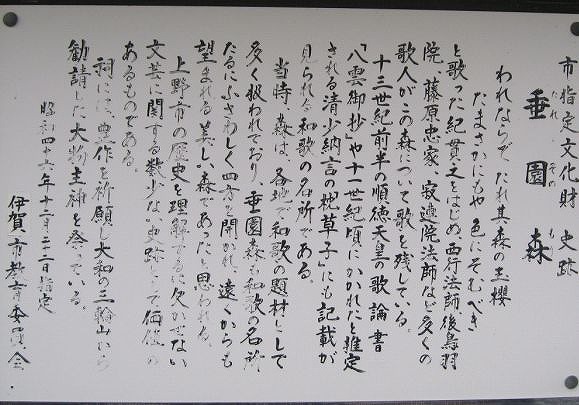 市指定文化財 史跡
垂園森
たれその もり
われならで だれ其森の玉櫻
たまさかにもや 色にそむべき
と歌った紀貫之をはじめ西行法師後鳥羽
院、藤原忠家、寂蓮院法師など多くの
歌人がこの森について歌を残している。
十三世紀前半の順徳天皇の歌論書
「八雲御抄」や十一世紀頃にかかれたと推定
される清少納言の「枕草子」にも記載が
見られる和歌の名所である。
当時、森は、各地で和歌の題材として
多く扱われており、垂園森も和歌の名所
たるにふさわしく四方を開かれ、遠くからも
望まれる美しい森であったと思われる。
上野市の歴史を理解するに欠かせない
文芸に関する数少ない史跡として価値の
あるものである。
祠には、豊作を祈願し大和の三輪山から
勧請した大物主神を祭っている。
昭和四十六年十二月二二日指定
伊賀市教育委員会